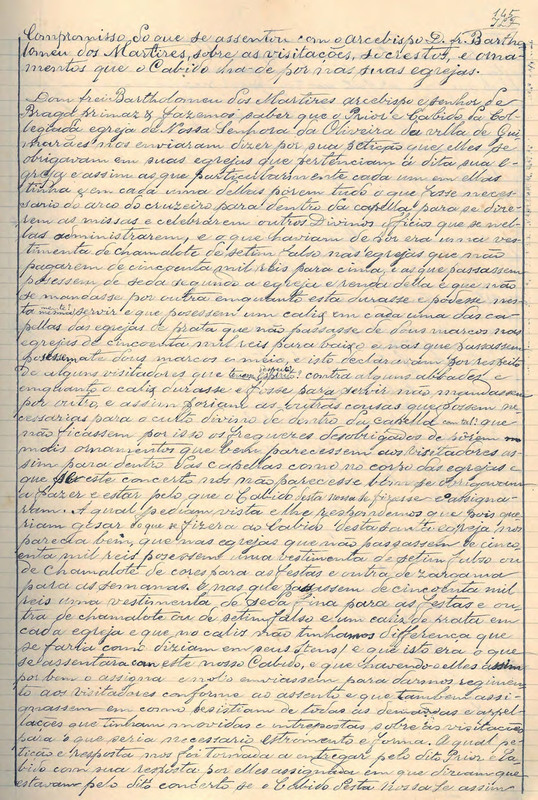 145
Compromisso, do que se assentou com o arcebispo D. fr. Bartho
lomeu dos Martires, sobre as visitações, socrestos, e orna-
mentos que o Cabido ha-de por nas suas egrejas.
Dom frei Bartholomeu dos Martires arcebispo e senhor de
Braga Primaz & fazemos saber que o Prior e Cabido da Col-
legiada egreja de Nossa Senhora da Oliveira da villa de Gui
marães nos enviaram dizer por sua petição que elles se
obrigavam em suas egrejas que pertenciam á dita sua e-
greja e assim as que particularmente cada um em ellas
tinha & em cada uma dellas porem tudo o que fosse neces-
sario do arco do cruzeiro para dentro da capella para se dize-
rem as missas e celebrarem outros Divinos officios que se nel-
las administrarem, e o que haviam de por era uma ves-
timenta de chamalote de setim falso nas egrejas que não
pagarem de cincoenta mil reis para cima, e as que passassem
posessem de seda segundo a egreja e renda della e que não
se mandasse por outra emquanto esta durasse e podesse nes-
ta servir e que posessem um calix em cada uma das ca-
pellas das egrejas de prata que não passasse de deus marcos nas
egrejas de cincoenta mil reis para baixo e nas que passassem
posessem ate dous marcos e meio, e isto declaravam por respeito
de alguns visitadores que contra alguns abbades e
emquanto o calix durasse e fosse para servir não mandassem
por outro, e assim poriam as outras cousas que fossem ne-
cessarias para o culto divino de dentro da capella com tal: que
não ficassem por isso os freguezes desobrigados de porem
mais ornamentos que bem parecessem aos visitadores as-
sim para dentro das capellas como no corpo das egrejas e
que se este concerto nos não parecesse bem se obrigavam
a fazer e estar pelo que o Cabido desta nossa se fizesse e assigna-
ram. A qual pediam vista e lhe respondemos que pois que
riam gosar do que se fizera ao Cabido desta santa egreja nos
parecia bem, que nas egrejas que não passassem de cinco
enta mil reis posessem uma vestimenta de setim falso ou
de Chamalote de cores para as festas e outra de zarzama
para as semanas. e nas que passem de cincoenta mil
reis uma vestimenta de seda fina para as festas e ou
tra de chamalote ou de setim falso e um calix de prata em
cada egreja e que no calix não tinhamos differença que
se faria como diziam em seus itens/ e que isto era o que
se assentara com este nosso Cabido, e que havendo o elles assim
por bem o assigna e nol-o enviassem para darmos regimen
to aos visitadores conforme ao assento e que tambem assi-
gnassem em como desistiam de todas as demandas e appel-
lações que tinham movidas e interpostas sobre as visitações
para o que seria necessario estromento e forma. A qual pe-
tição e resposta nos foi tornada a entregar pelo dito Prior e Ca-
bido com sua resposta por elles assignada em que diziam que
estavam pelo dito concerto se o Cabido desta nossa Se assim